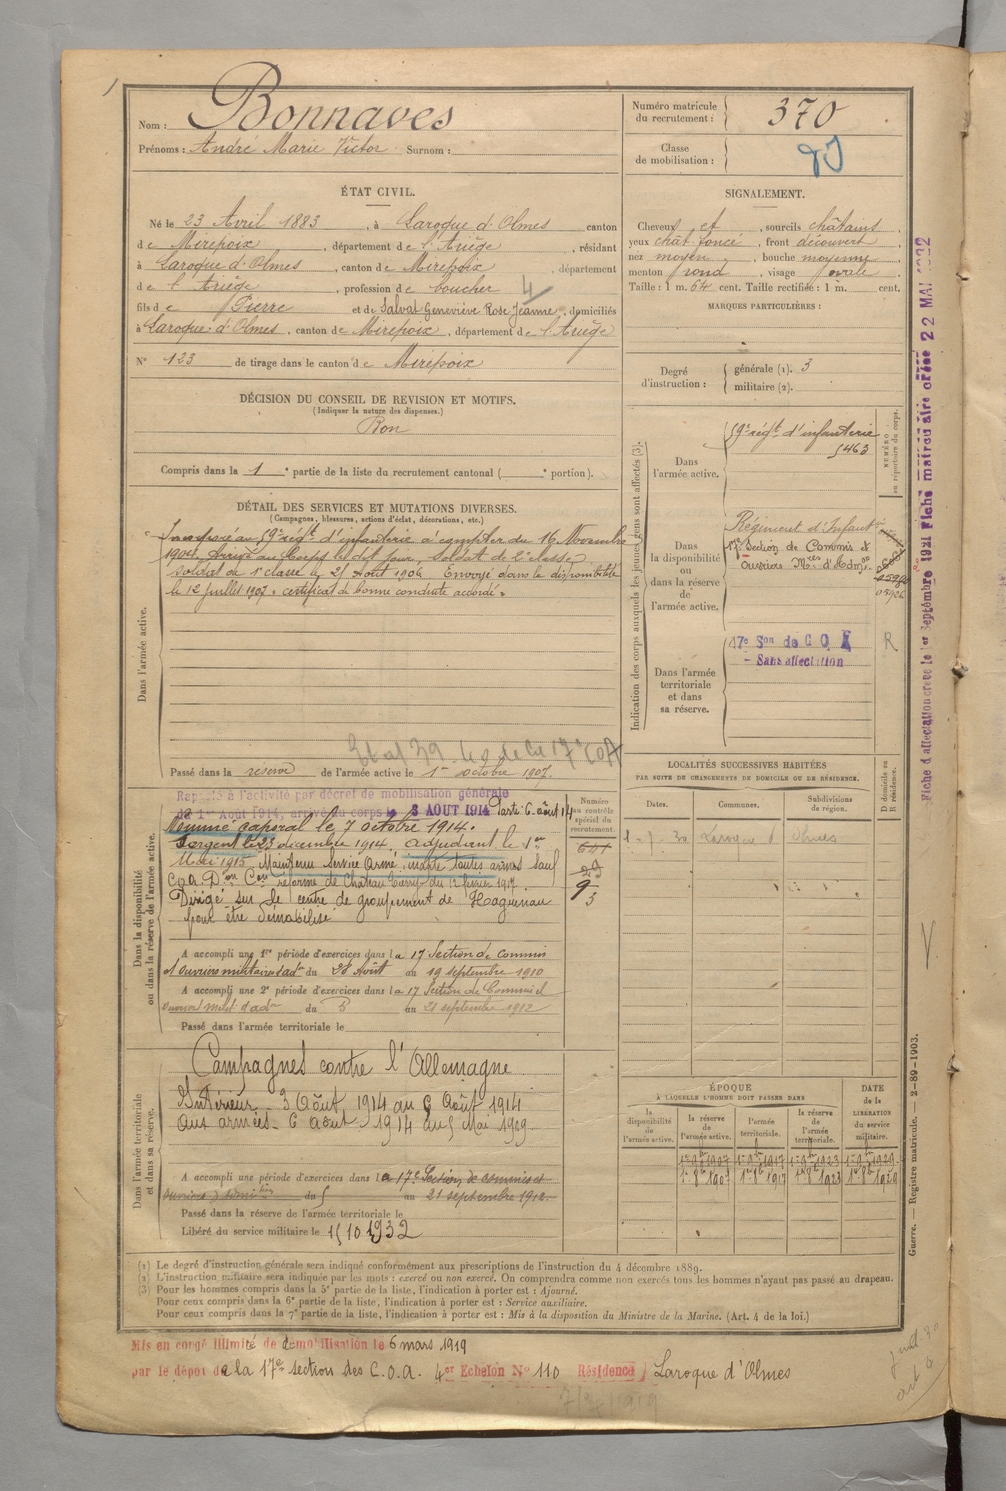 Nom : Bonnaves
Prénoms : André Marie Victor Surnom :
Numéro matricule du recrutement : 370
Classe de mobilisation :
ÉTAT CIVIL.
Né le 23 Avril 1883, à Laroque d'Olmes canton
de Mirepoix, département de l'Ariège, résidant
à Laroque d'Olmes, canton de Mirepoix, département
de l'Ariège, profession de boucher 4
fils de Pierre et de Salvat Geneviève Rose Jeanne, domiciliés
à Laroque d'Olmes, canton de Mirepoix, département de l'Ariège
N° 123 de tirage dans le canton de Mirepoix
SIGNALEMENT.
Cheveux et, sourcils châtains
yeux chât. foncé, front découvert
nez moyen, bouche moyenne
menton rond, visage ovale
Taille : 1 m. 64 cent. Taille rectifiée : 1 m. cent.
MARQUES PARTICULIÈRES :
Degré d'instruction : générale (1). 3
militaire (2).
DÉCISION DU CONSEIL DE REVISION ET MOTIFS.
(Indiquer la nature des dispenses.)
Bon
Compris dans la 1e partie de la liste du recrutement cantonal ( e portion).
DÉTAIL DES SERVICES ET MUTATIONS DIVERSES.
(Campagnes, blessures, actions d'éclat, décorations, etc.)
Dans l'armée active.
Incorporé au 59e régt d'infanterie à compter du 16 Novembre
1904. Arrivé au Corps le dit jour, Soldat de 2e classe
soldat de 1e classe le 25 Août 1906. Envoyé dans la disponibilité
le 12 juillet 1907. certificat de bonne conduite accordé.
Passé dans la réserve de l'armée active le 1er octobre 1907.
Indication des corps auxquels les jeunes gens sont affectés (3).
NUMÉRO au répertoire du corps.
Dans l'armée active.
59e régt d'infanterie
5463
Dans la disponibilité ou dans la réserve de l'armée active.
Régiment d'Infant
17e Section de Commis et
Ouvriers Mres d'Adm
Dans l'armée territoriale et dans sa réserve.
17e Son de COA R
- Sans affectation
LOCALITÉS SUCCESSIVES HABITÉES
PAR SUITE DE CHANGEMENTS DE DOMICILE OU DE RÉSIDENCE.
Dates. Communes. Subdivisions de région. D domicile ou R résidence.
Laroque d'Olmes
Dans la disponibilité ou dans la réserve de l'armée active.
Numéro au contrôle spécial du recrutement.
Rappelé à l'activité par décret de mobilisation générale
du 1er Août 1914, arrivé au corps le 3 AOUT 1914 Parti 6 août 14
Nommé caporal le 7 octobre 1914.
Sergent le 23 décembre 1914. adjudant le 1er
Mai 1915. Maintenu Service Armé, inapte toutes armes sauf
C.O.A. Don Con réforme de Château Thierry du 12 février 1917
Dirigé sur le centre de groupement de Haguenau
pour être démobilisé
A accompli une 1re période d'exercices dans la 17 Section de commis
et ouvriers militaires d'adon du 28 Août au 19 septembre 1910
A accompli une 2e période d'exercices dans la 17 Section de Commis et
ouvriers milit d'adon du 5 au 21 septembre 1912
Passé dans l'armée territoriale le
Dans l'armée territoriale et dans sa réserve.
Campagnes contre l'Allemagne
Intérieur 3 Août 1914 au 6 Août 1914
Aux armées 6 août 1914 au 5 Mai 1919
A accompli une période d'exercices dans la 17e Section de commis et
du 5 au 21 septembre 1912
Passé dans la réserve de l'armée territoriale le
Libéré du service militaire le 15 10 1932
ÉPOQUE
À LAQUELLE L'HOMME DOIT PASSER DANS
la disponibilité de l'armée active. la réserve de l'armée active. l'armée territoriale. la réserve de l'armée territoriale.
DATE de la LIBÉRATION du service militaire.
(1) Le degré d'instruction générale sera indiqué conformément aux prescriptions de l'instruction du 4 décembre 1889.
(2) L'instruction militaire sera indiquée par les mots : exercé ou non exercé. On comprendra comme non exercés tous les hommes n'ayant pas passé au drapeau.
(3) Pour les hommes compris dans la 5e partie de la liste, l'indication à porter est : Ajourné.
Pour ceux compris dans la 6e partie de la liste, l'indication à porter est : Service auxiliaire.
Pour ceux compris dans la 7e partie de la liste, l'indication à porter est : Mis à la disposition du Ministre de la Marine. (Art. 4 de la loi.)
Mis en congé illimité de démobilisation le 6 mars 1919
par le dépôt de la 17e section des C.O.A. 4er Echelon N° 110 Résidence Laroque d'Olmes
Fiche d'affectation créée le 1er Septembre 1921 Fiche matriculaire créée 22 MAI 1922
Guerre. — Registre matricule. — 2-89-1903.